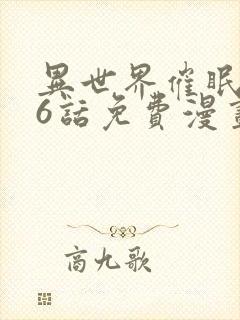 異世界催眠
6話免費漫畫
商九歌